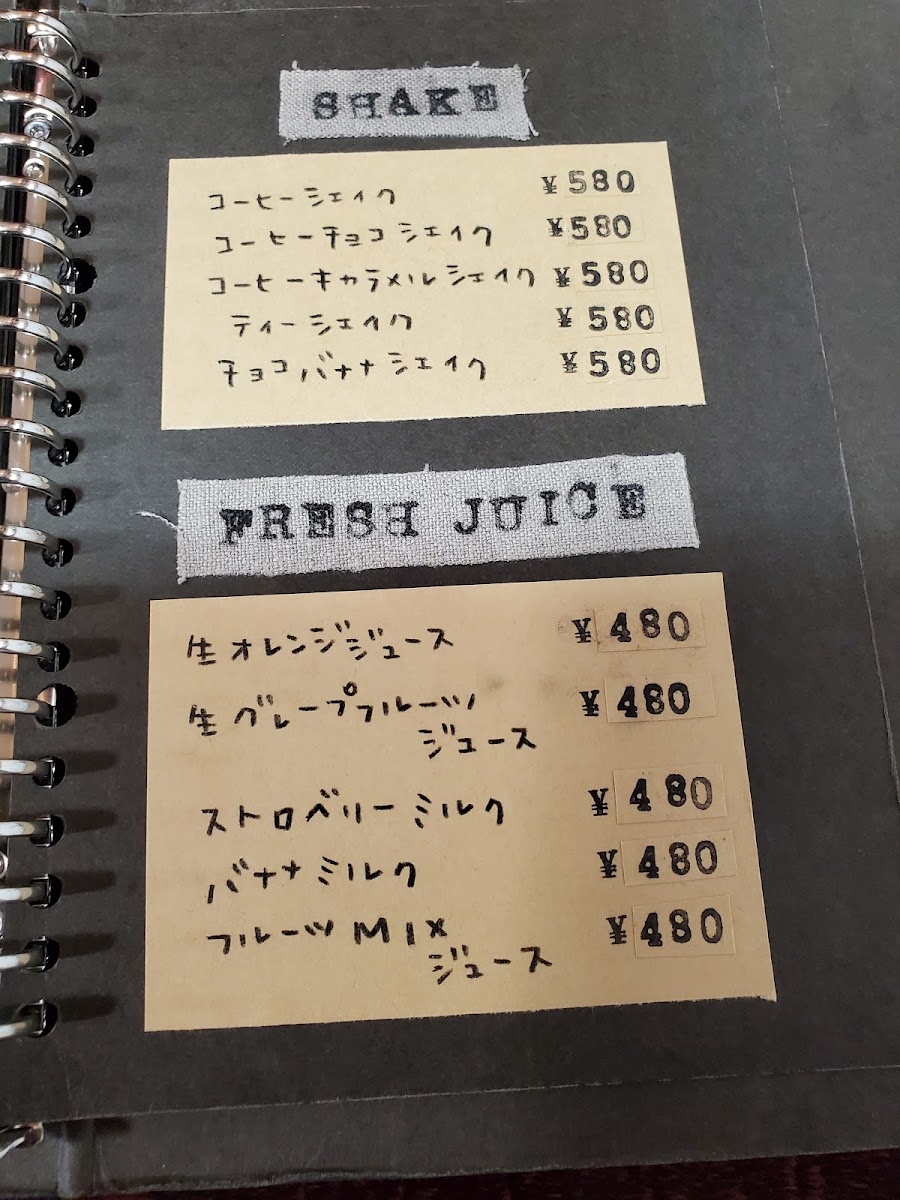 SHAKE
コーヒーシェイク ¥580
コーヒーチョコシェイク ¥580
コーヒーキャラメルシェイク ¥580
ティーシェイク ¥580
チョコバナナシェイク ¥580
FRESH JUICE
生オレンジジュース ¥480
生グレープフルーツ ¥480
ジュース
ストロベリーミルク ¥480
バナナミルク ¥480
フルーツMIX ¥480
ジュース